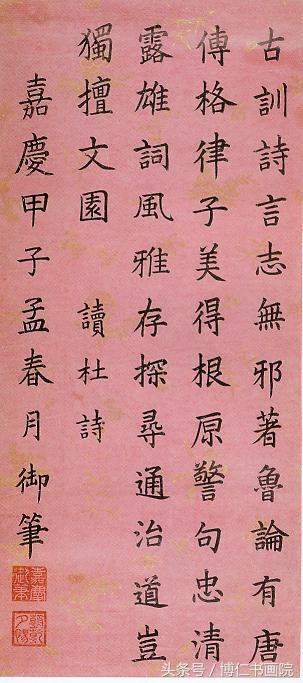 古訓詩言志無邪著魯論有唐
傳格律子美得根原警句忠清
露雄詞風雅存探尋通治道豈
獨擅文園 讀杜詩
嘉慶甲子孟春月御筆
嘉慶御筆
头条号／博仁书画院